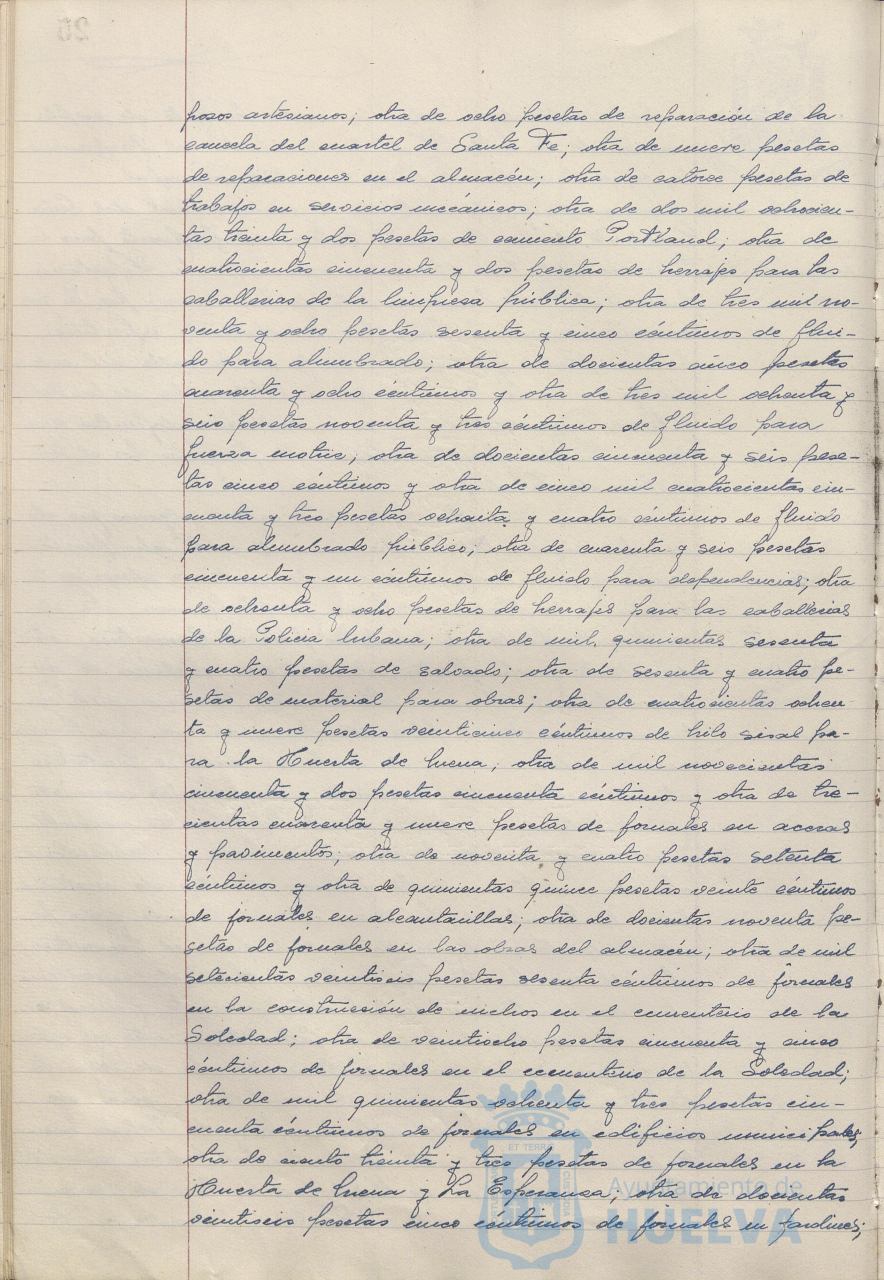 posos artesianos; otra de ocho pesetas de reparación de la
cancela del cuartel de Santa Fe; otra de nueve pesetas
de reparaciones en el almacén; otra de catorce pesetas de
trabajos en servicios mecánicos; otra de dos mil ochocien-
tas treinta y dos pesetas de cemento Portland; otra de
cuatrocientas cincuenta y dos pesetas de herrajes para las
caballerias de la limpiesa pública; otra de tres mil no-
venta y ocho pesetas sesenta y cinco céntimos de flui-
do para alumbrado; otra de docientas cinco pesetas
cuarenta y ocho céntimos y otra de tres mil ochenta y
seis pesetas noventa y tres céntimos de fluido para
fuerza motriz; otra de docientas cincuenta y seis pese-
tas cinco céntimos y otra de cinco mil cuatrocientas cin-
cuenta y tres pesetas ochenta y cuatro céntimos de fluido
para alumbrado público; otra de cuarenta y seis pesetas
cincuenta y un céntimos de fluido para dependencias; otra
de ochenta y ocho pesetas de herrajes para las caballerias
de la Policia Urbana; otra de mil quinientas sesenta
y cuatro pesetas de salvado; otra de sesenta y cuatro pe-
setas de material para obras; otra de cuatrocientas ochen
ta y nueve pesetas veinticinco céntimos de hilo sisal pa-
ra la Huerta de Mena; otra de mil novecientas
cincuenta y dos pesetas cincuenta céntimos y otra de tre-
cientas cuarenta y nueve pesetas de jornales en aceras
y pavimentos; otra de noventa y cuatro pesetas setenta
céntimos y otra de quinientas quince pesetas veinte céntimos
de jornales en alcantarillas; otra de docientas noventa pe-
setas de jornales en las obras del almacén; otra de mil
setecientas veintiseis pesetas sesenta céntimos de jornales
en la construcción de nichos en el cementerio de la
Soledad; otra de veintiocho pesetas cincuenta y cinco
céntimos de jornales en el cementerio de la Soledad;
otra de mil quinientas ochenta y tres pesetas cin-
cuenta céntimos de jornales en edificios municipales;
otra de ciento treinta y tres pesetas de jornales en la
Huerta de Mena y La Esperanza; otra de docientas
veintiseis pesetas cinco céntimos de jornales en jardines;
ET TERRÆ
Ayuntamiento de
HUELVA